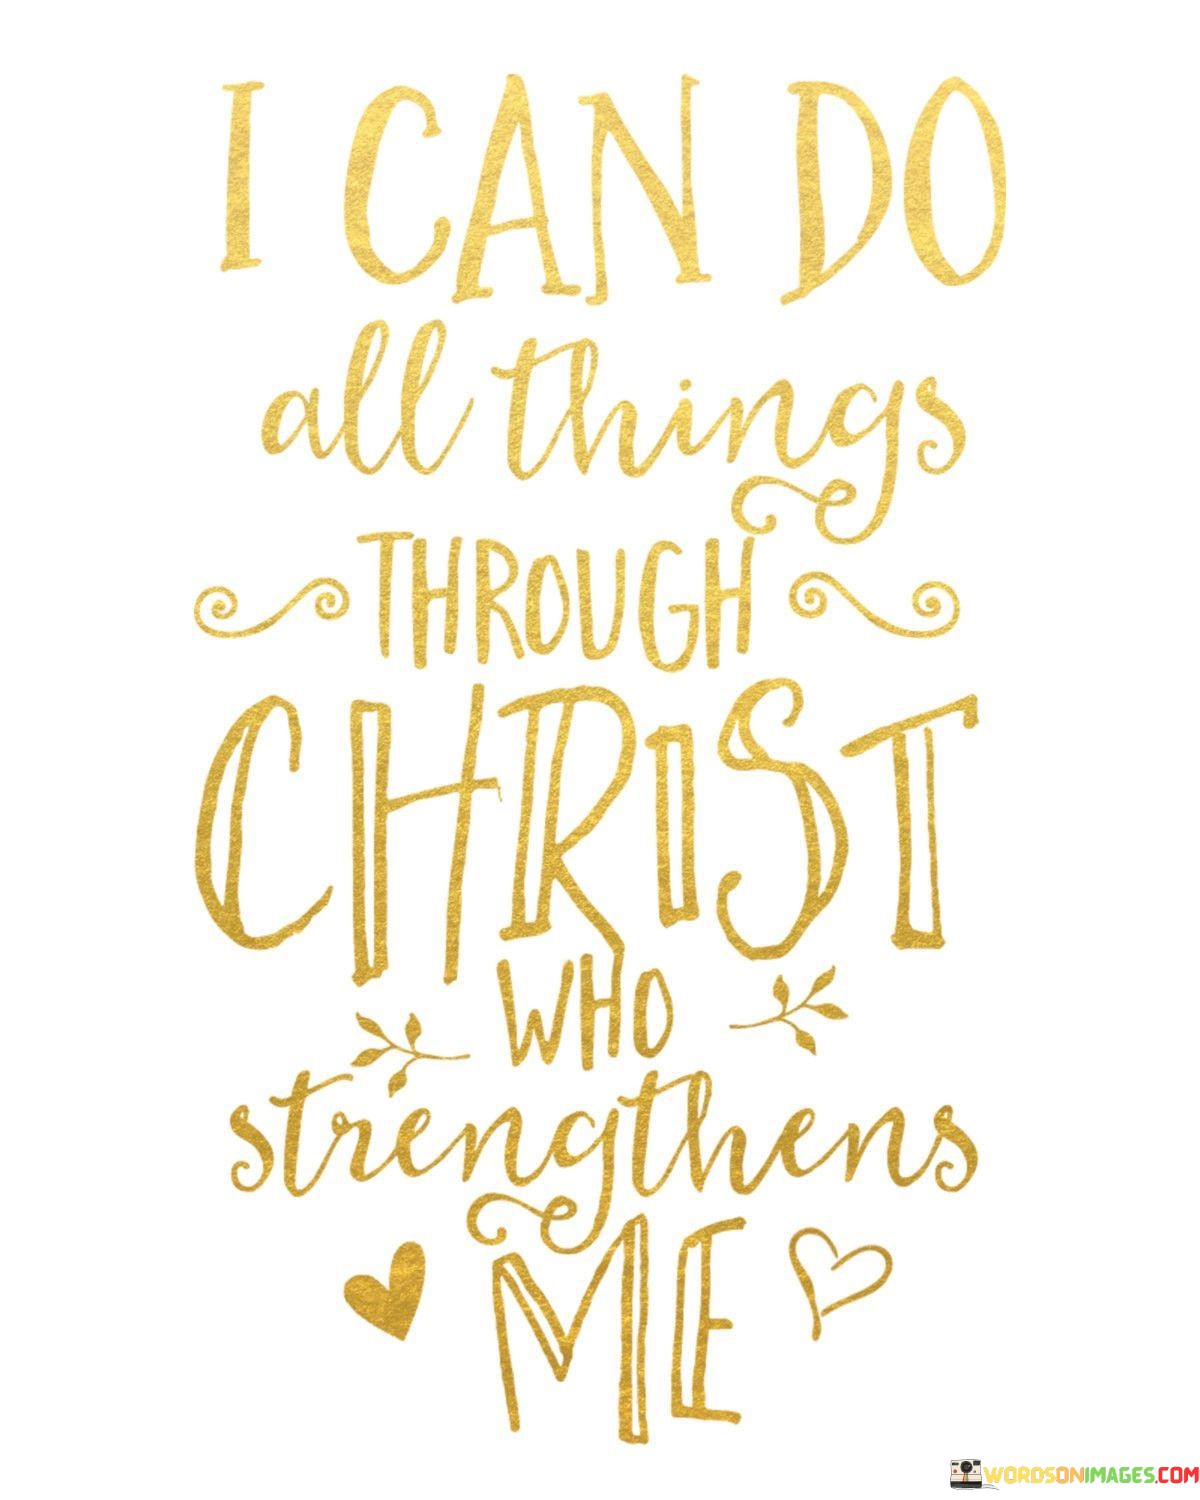 I CAN DO
all things
THROUGH
CHRIST
WHO
strengthens
ME
WORDSONIMAGES.COM